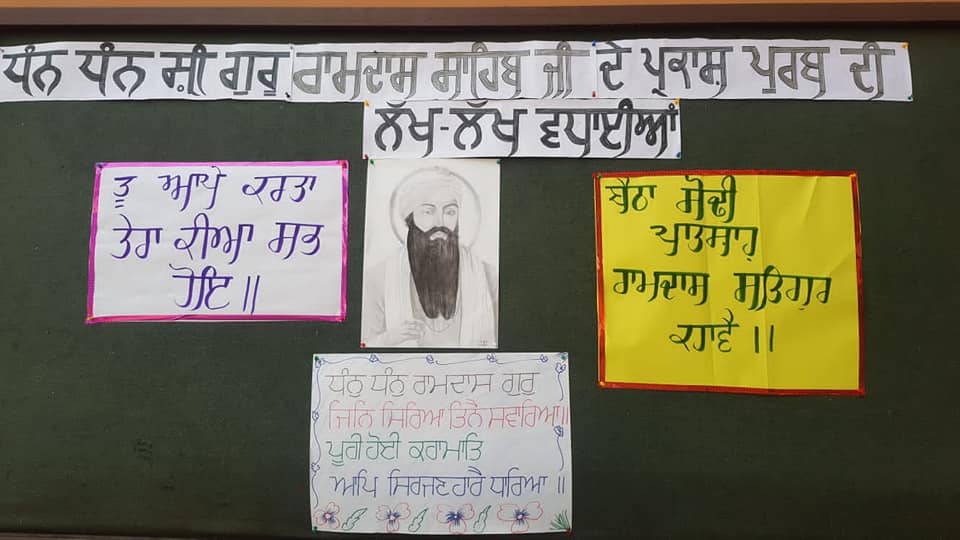 ਧੰਨ ਧੰਨ ਸ਼੍ਰੀ ਗੁਰੂ ਰਾਮਦਾਸ ਸਾਹਿਬ ਜੀ ਦੇ ਪ੍ਰਕਾਸ਼ ਪੁਰਬ ਦੀ
ਲੱਖ-ਲੱਖ ਵਧਾਈਆਂ
ਤੂ ਆਪੇ ਕਰਤਾ
ਤੇਰਾ ਕੀਆ ਸਭ
ਹੋਇ ॥
ਬੈਠਾ ਸੋਢੀ
ਪਾਤਸਾਹੁ
ਰਾਮਦਾਸ ਸਤਿਗੁਰ
ਕਹਾਵੈ ॥
ਧੰਨੁ ਧੰਨੁ ਰਾਮਦਾਸ ਗੁਰੁ
ਜਿਨਿ ਸਿਰਿਆ ਤਿਨੈ ਸਵਾਰਿਆ॥
ਪੂਰੀ ਹੋਈ ਕਰਾਮਾਤਿ
ਆਪਿ ਸਿਰਜਣਹਾਰੈ ਧਾਰਿਆ ॥